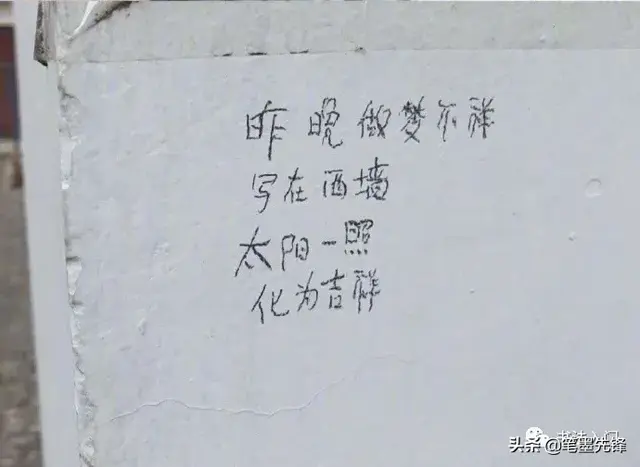 昨晚做梦不祥
写在西墙
太阳一照
化为吉祥
书法入门
头条@笔墨先锋